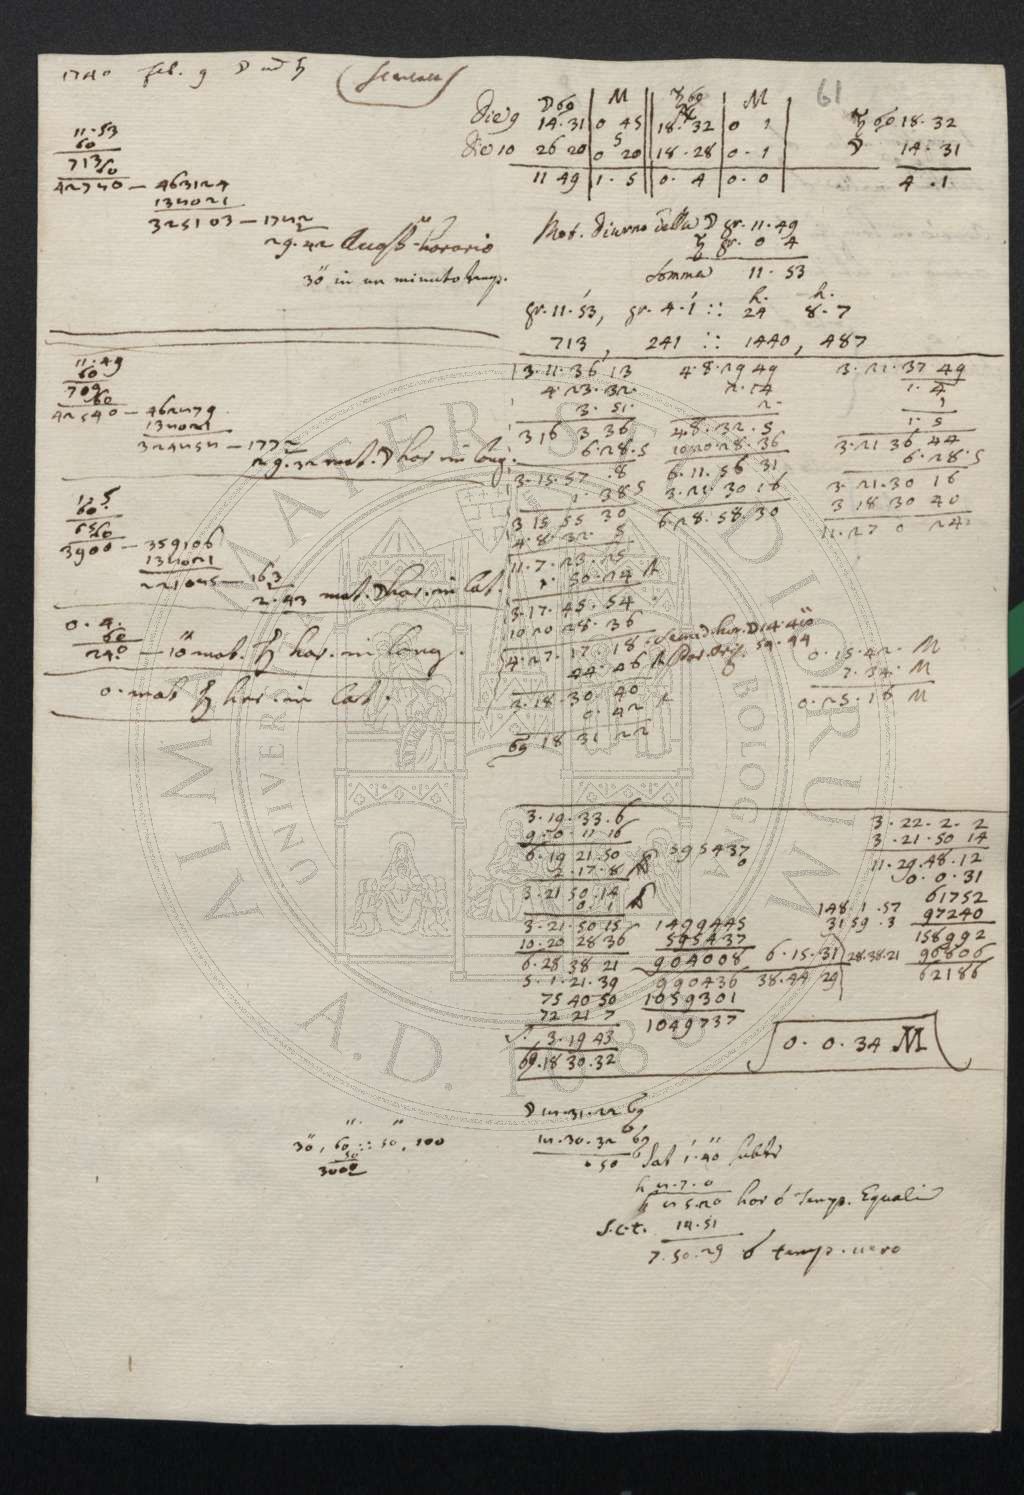 1740 feb. 9 ☽ ad ♄
61
☽ 69 | M | ♄ 69 | M
die 9 14·31 | 0 45 | 18·32 | 0 1
die 10 26 20 | 0 20 | 18·28 | 0·1
11 49 | 1·5 | 0·4 | 0·0
♄ 69 18·32
☽ 14·31
4·1
11·53
60
713
60
42780 — 463124
134021
325103 — 1782
29·42 horario
30" in un minuto temp.
Mot. diurno della ☽ gr. 11·49
♄ gr. 0 4
Somma 11·53
gr. 11·53, gr. 4·1 :: h. 24 h. 8·7
713, 241 :: 1440, 487
11·49
60
709
60
42540 — 462579
134021
1772
29·32 mot. ☽ hor. in long.
1·5
60
65
60
3900 — 359106
134021
225085 — 163
2·43 mot. ☽ hor. in Lat.
0·4
60
240 — 10" mot. ♄ hor. in long.
0· mot ♄ hor. in Lat.
13·11·36 13
4·23·32
3·51
316 3 36
6·28·5
3·15·57·8
1·38 5
3 15 55 30
4·8·32·5
11·7·23·25
1·50·24
3·17·45·54
10 20 28·36
4·27·17·18
44·46
3·18·30 40
0·42
69 18 31 22
4·8·29 49
2·14
2·
4·8·32·5
10 20·28·36
6·11·56 31
3·21·30 16
6·28·58·30
3·21·37 49
1·4
1
1·5
3·21 36 44
6·28·5
3·21·30 16
3 18 30 40
11·27 0 24
14·40"
59·44
0·15·42· M
7·34· M
0·25·16 M
3·19·33·6
9·0·11 16
6·19 21·50
2·17·8
3·21 50·14
0·1
3·21·50·15
10·20 28 36
6·28 38 21
5·1·21·39
75 40 50
72 21 7
3·19 43
69·18 30·32
595437
0
1499445
595437
904008
990436
1059301
1049737
6·15·31
38·44 29
28·38·21
3·22·2·2
3·21·50 14
11·29·48·12
0·0·31
148·1·57
31 59·3
61752
97240
158992
96806
62186
0·0·34 M
30", 60 :: 50", 100
50
3000
☽ 18·31·22 69
18·30·32 69
0 50 Lat 1·40" subtr
h 8·7·0
h 8 5·20 hor ☌ Temp. Equali
S.c.t. 14·51
7·50·29 ☌ temp. vero
ALMA MATER STUDIORUM
UNIVER BOLOGNA
A.D. 1088